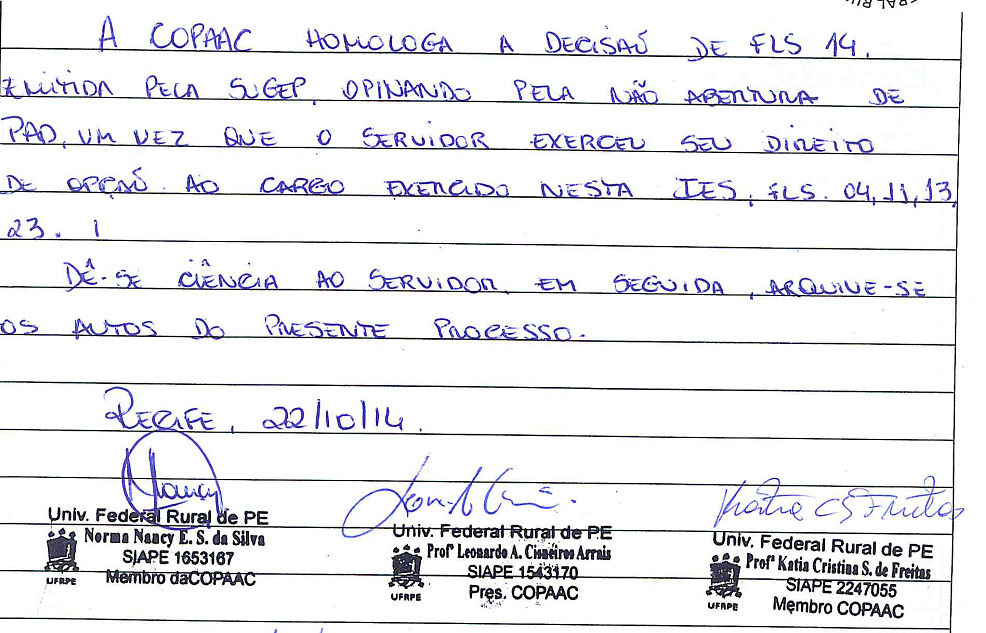 A COPAAC HOMOLOGA A DECISÃO DE FLS 14.
EMITIDA PELA SUGEP, OPINANDO PELA NÃO ABERTURA DE
PAD, UM VEZ QUE O SERVIDOR EXERCEU SEU DIREITO
DE OPÇÃO AO CARGO EXERCIDO NESTA IES, FLS. 04, 11, 13,
23.
DÊ-SE CIÊNCIA AO SERVIDOR, EM SEGUIDA, ARQUIVE-SE
OS AUTOS DO PRESENTE PROCESSO.
RECIFE, 22/10/14.
Nancy
Katia CS Freitas
Univ. Federal Rural de PE
Norma Nancy E. S. da Silva
SIAPE 1653167
Membro da COPAAC
UFRPE
Univ. Federal Rural de PE
Profº Leonardo A. Cisneiros Arrais
SIAPE 1543170
Pres. COPAAC
UFRPE
Univ. Federal Rural de PE
Profª Katia Cristina S. de Freitas
SIAPE 2247055
Membro COPAAC
UFRPE